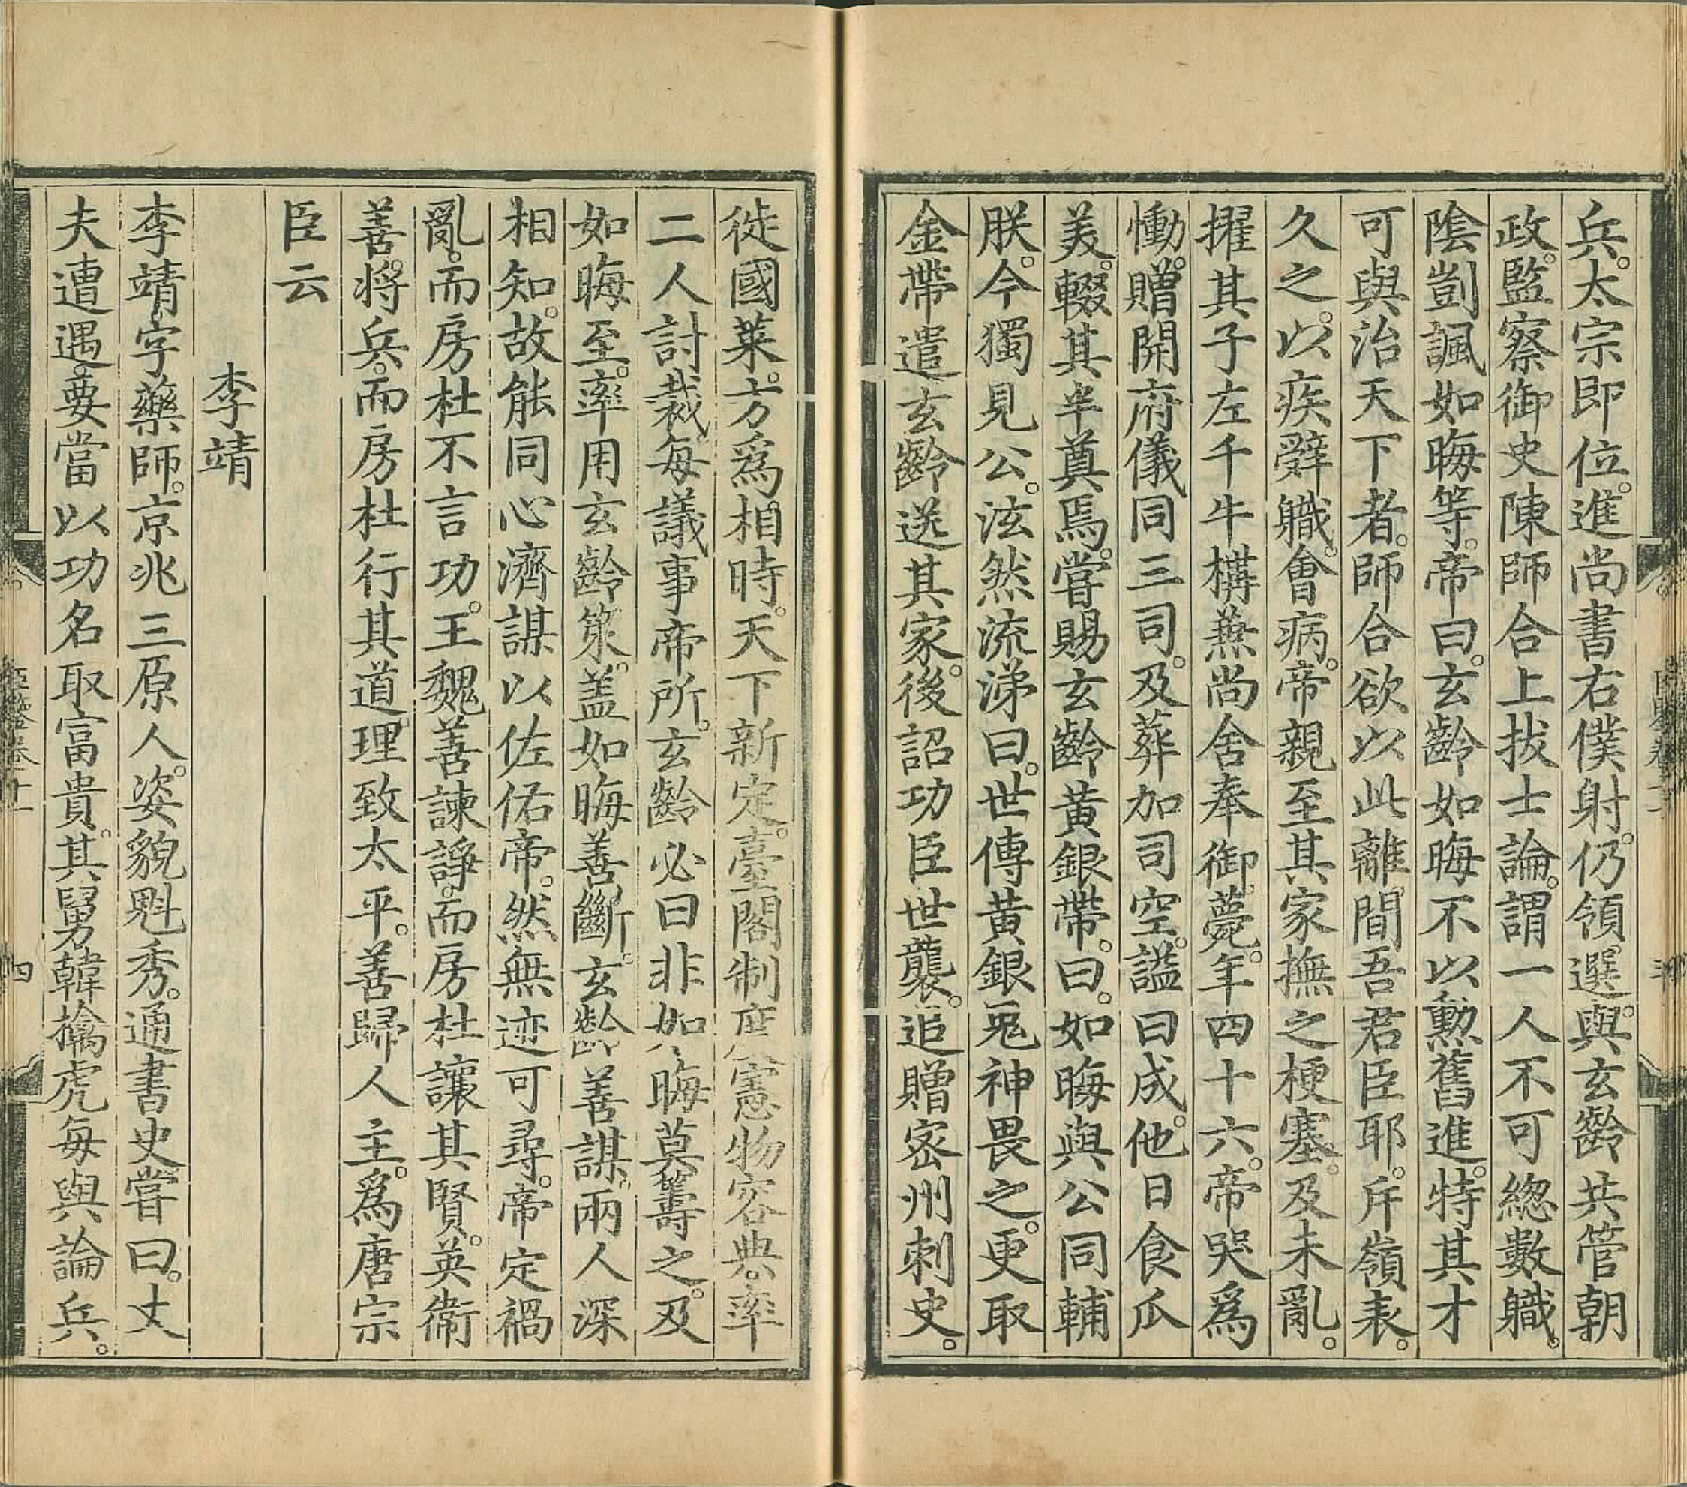 兵。太宗即位。進尚書右僕射。仍領選。與玄齡共管朝
政。監察御史陳師合上拔士論。謂一人不可總數職。
陰剴諷如晦等。帝曰。玄齡如晦不以勳舊進。特其才
可與治天下者。師合欲以此離間吾君臣耶。斥嶺表。
久之。以疾辭職。會病。帝親至其家撫之梗塞。及未亂。
擢其子左千牛構兼尚舍奉御。薨。年四十六。帝哭為
慟。贈開府儀同三司。及葬加司空。謚曰成。他日食瓜
美。輟其半奠焉。嘗賜玄齡黃銀帶。曰。如晦與公同輔
朕。今獨見公。泫然流涕曰。世傳黃銀鬼神畏之。更取
金帶遣玄齡送其家。後詔功臣世襲。追贈密州刺史。
徙國萊。方爲相時。天下新定。臺閣制度憲物容典。率
二人討裁。每議事帝所。玄齡必曰非如晦莫籌之。及
如晦至。率用玄齡策。蓋如晦善斷。玄齡善謀。兩人深
相知。故能同心濟謀以佐佑帝。然無迹可尋。帝定禍
亂。而房杜不言功。王魏善諫諍。而房杜讓其賢。英衛
善將兵。而房杜行其道。理致太平。善歸人主。爲唐宗
臣云
李靖
李靖。字藥師。京兆三原人。姿貌魁秀。通書史嘗曰。丈
夫遭遇。要當以功名取富貴。其舅韓擒虎每與論兵。
四